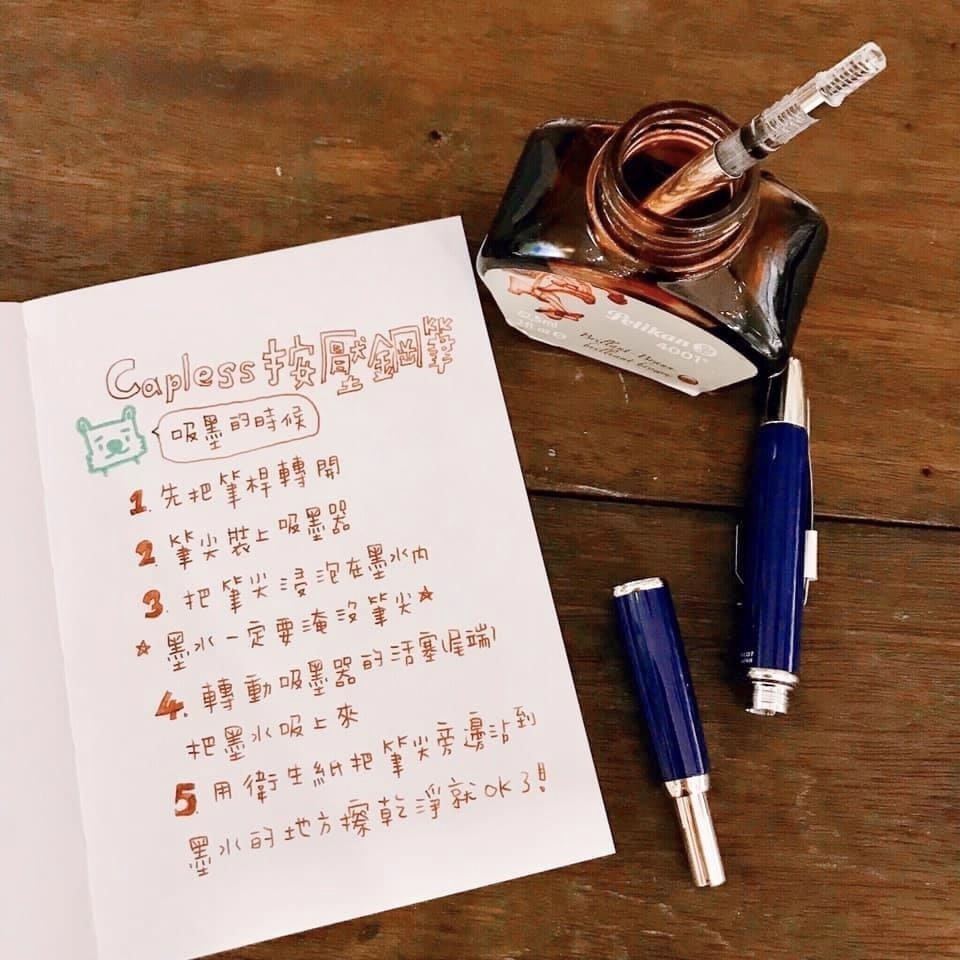 Capless 按壓鋼筆
吸墨的時候
1. 先把筆桿轉開
2. 筆尖裝上吸墨器
3. 把筆尖浸泡在墨水內
☆ 墨水一定要淹沒筆尖☆
4. 轉動吸墨器的活塞(尾端)
把墨水吸上來
5. 用衛生紙把筆尖旁邊沾到
墨水的地方擦乾淨就OK了!
62.5ml
Pelikan
4001
Brillant-Braun
brilliant brown